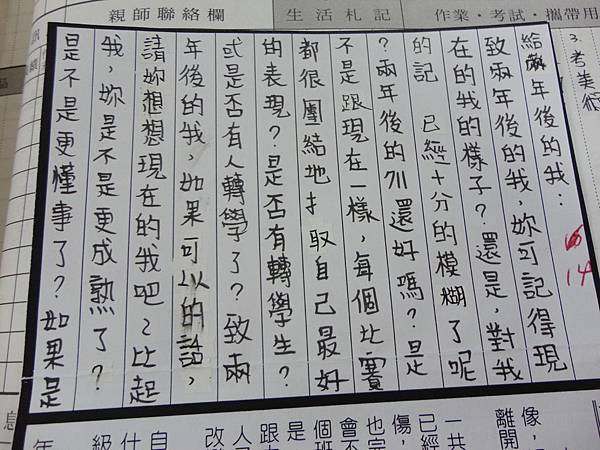 親師聯絡欄
生活札記
作業・考試・攜帶用
3.考美術
14
給兩年後的我：
致兩年後的我，妳可記得現
在的我的樣子？還是，對我
的記 已經十分的模糊了呢
？兩年後的711還好嗎？是
不是跟現在一樣，每個比賽
都很團結地扌取自己最好
的表現？是否有轉學生？
或是否有人轉學了？致兩
年後的我，如果可以的話，
請妳想想現在的我吧~比起
我，妳是不是更成熟了？
是不是更懂事了？如果是
像，
離開
一共
已經
傷，
會不
個班
是